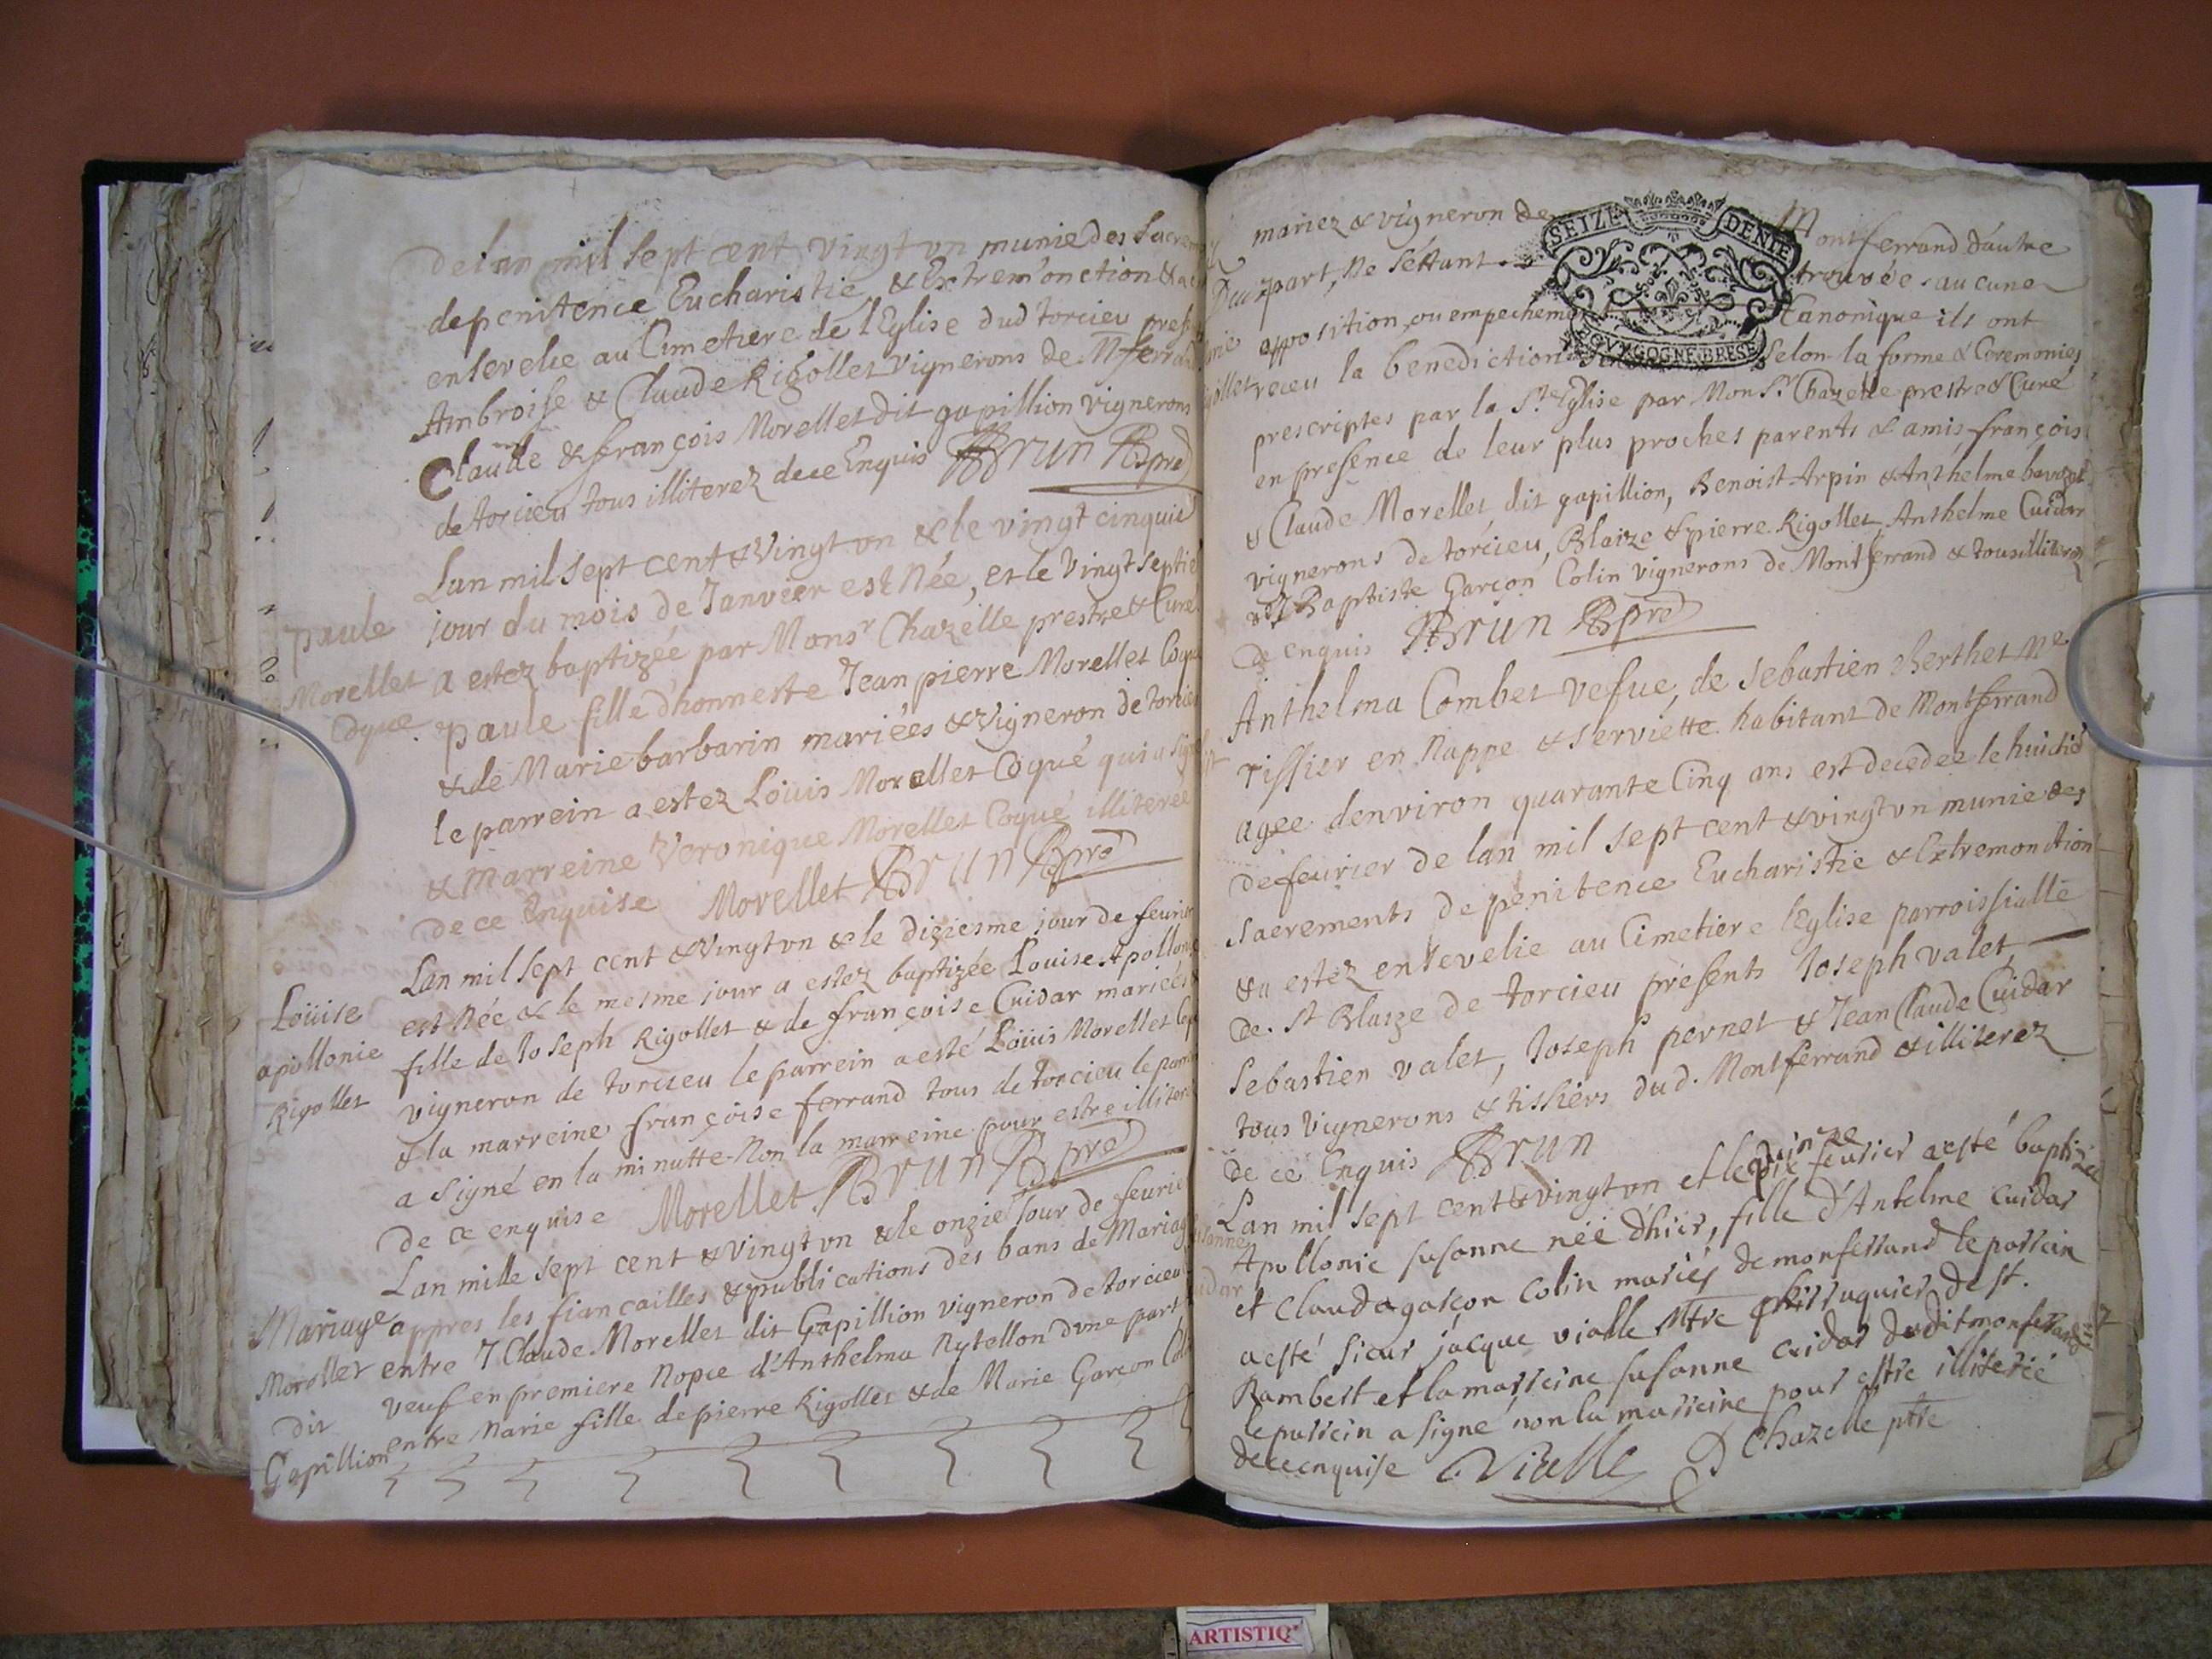 De l'an mil sept cent vingt vn munie des Sacrem
de penitence Eucharistie, & Extrem'onction & a e
ensevelie au Cimetiere de l'Eglise dud torcieu prese
Ambroise & Claude Rigollet vignerons de Mferra
Claude & françois Morellet dit gapillion vignerons
de torcieu tous illiterez de ce Enquis Brun pre
Lan mil sept cent & Vingt vn & le vingt cinquie
jour du mois de Janveer est Née, et le Vingt septie
paule
a estez baptizée par Monsr Chazelle prestre & Curé
Morellet
Coque
paule fille d'honneste Jean pierre Morellet Coque
& de Marie barbarin mariées & Vigneron de torcieu
le parrein a estez Loüis Morellet Coqué qui a signé
& Marreine Veronique Morellet Coqué illiterée
de ce Enquise Morellet Brun pre
Lan mil sept cent & Vingt vn & le diziesme jour de feurier
Loüise
apollonie
Rigollet
est Née & le mesme jour a estez baptizée Louise Apollonie
fille de Joseph Rigollet & de françoise Cuidar mariées
vigneron de torcieu le parrein a esté Loüis Morellet
& la marreine françoise ferrand tous de torcieu le parr
a signé en la minutte Non la marreine pour estre illiter
de ce enquise Morellet Brun pre
Lan mille sept cent & Vingt vn & le onzie jour de feurie
Mariage
Morellet
dit
Gapillion
appres les fiancailles & publications des bans de Mariage
entre J Claude Morellet dit Gapillion vigneron de torcieu
veuf en premiere Nopce d'Anthelma Nytellon d'vne part
entre Marie fille de pierre Rigollet & de Marie Garcon Coli
mariez & vigneron de Montferrand d'autre
SEIZE DENIE
BOVRGOGNE BRESE
part, Ne s'éttant trouvée aucune
opposition ou empecheme Canonique ils ont
receu la benediction Selon la forme & Ceremonies
prescriptes par la Ste Eglise par Mon Sr Chazelle prestre & Curé
en presence de leur plus proches parents & amis françois
& Claude Morellet dit gapillion, Benoist Arpin & Anthelme bavozet
vignerons de torcieu, Blaize & pierre Rigollet Anthelme Cuidar
& J Baptiste Garcon Colin vignerons de Montferrand & tous illiterez
de enquis Brun pre
Anthelma Combet vefue, de Sebastien Berthet Me
Tissier en Nappe & Serviette habitant de Montferrand
agee denviron quarante Cinq ans est decedee le huictie
de feurier de lan mil sept cent & vingt vn munie des
Sacrements de penitence Eucharistie & Extremonction
& a estez ensevelie au Cimetiere l'Eglise parroissialle
de St Blaize de torcieu presents Joseph valet
Sebastien valet, Joseph pernet & Jean Claude Cuidar
tous vignerons & tissiers dud. Montferrand & illiterez
de ce Enquis Brun
Lan mil sept cent & vingt vn et le quinze feurier a esté baptizee
Apollonie susanne néé d'hier, fille d'Antelme Cuidar
et Clauda garçon Colin mariés de monferrand le parrein
a esté sieur jàcque vialle Mtre perruquier de st.
Rambert et la marreine susanne Cuidar dudit monferrand
le parrein a signé non la marreine pour estre illiterée
de ce enquise Vialle Chazelle ptre
ARTISTIQ